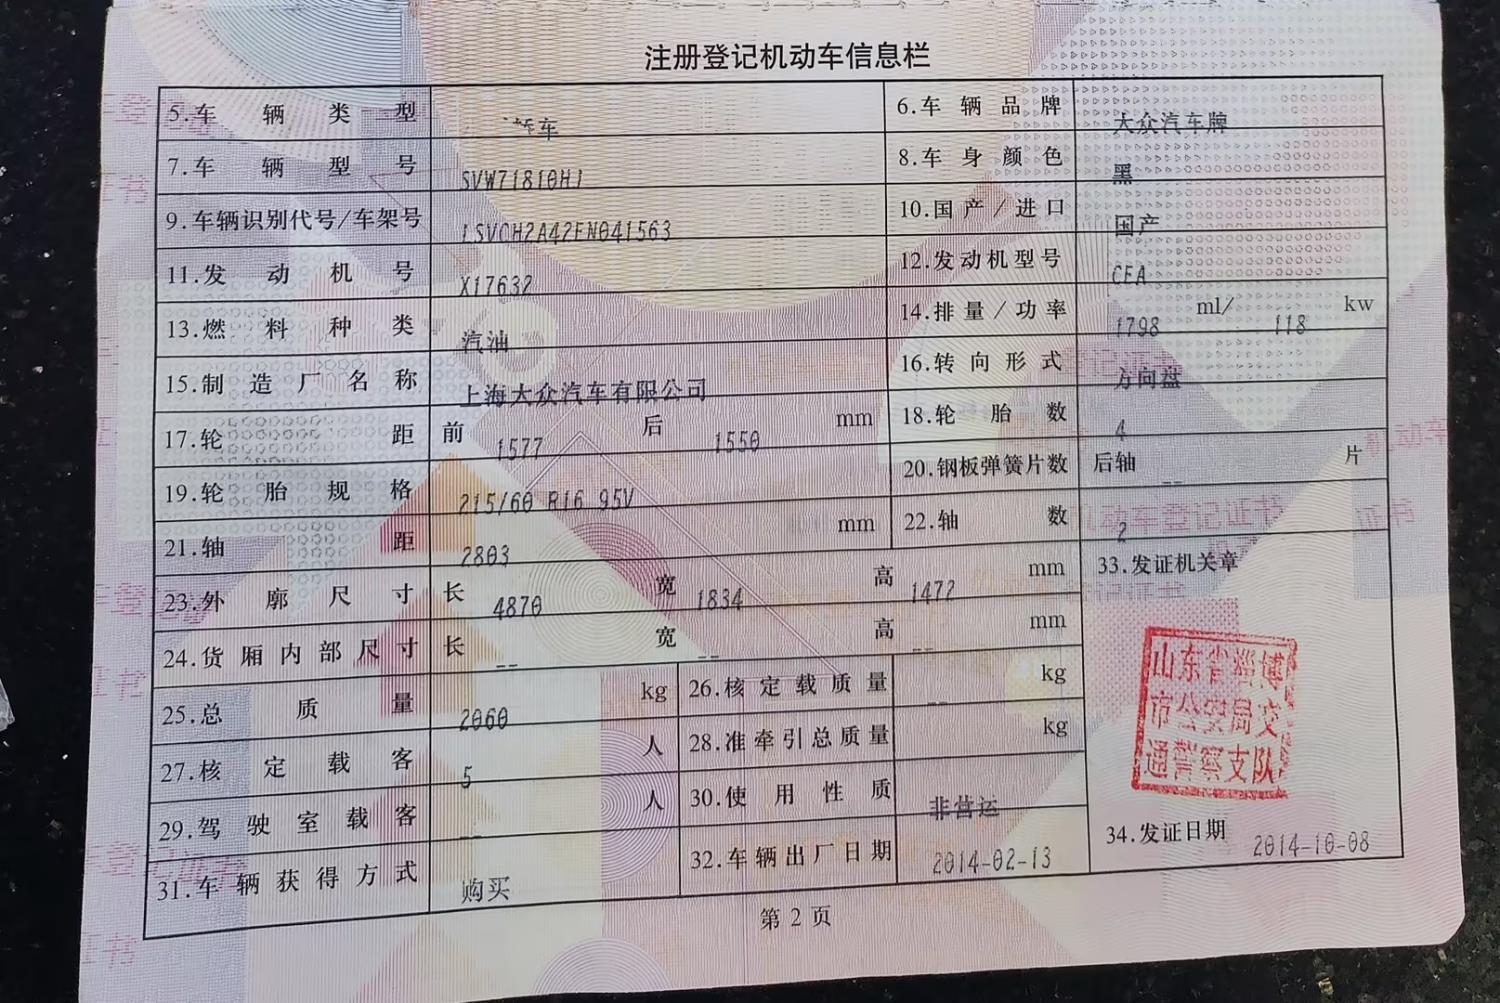 注册登记机动车信息栏
5.车辆类型 轿车 6.车辆品牌 大众汽车牌
7.车辆型号 SVW71810HJ 8.车身颜色 黑
9.车辆识别代号/车架号 LSVCH2A42EN041563 10.国产/进口 国产
11.发动机号 X17632 12.发动机型号 CEA
13.燃料种类 汽油 14.排量/功率 1798 ml/ 118 kw
15.制造厂名称 上海大众汽车有限公司 16.转向形式 方向盘
17.轮距 前 1577 后 1550 mm 18.轮胎数 4
19.轮胎规格 215/60 R16 95V 20.钢板弹簧片数 后轴 -- 片
21.轴距 2803 mm 22.轴数 2
23.外廓尺寸 长 4870 宽 1834 高 1472 mm 33.发证机关章
24.货厢内部尺寸 长 -- 宽 -- 高 -- mm
山东省淄博
市公安局交
通警察支队
25.总质量 2060 kg 26.核定载质量 -- kg
27.核定载客 5 人 28.准牵引总质量 kg
29.驾驶室载客 -- 人 30.使用性质 非营运
31.车辆获得方式 购买 32.车辆出厂日期 2014-02-13 34.发证日期 2014-10-08
第2页